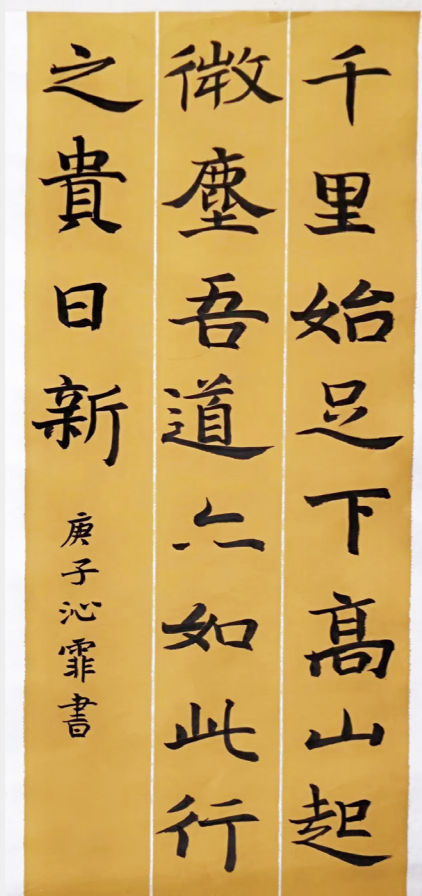 千里始足下高山起
微塵吾道亦如此行
之貴日新
庚子沁霏書